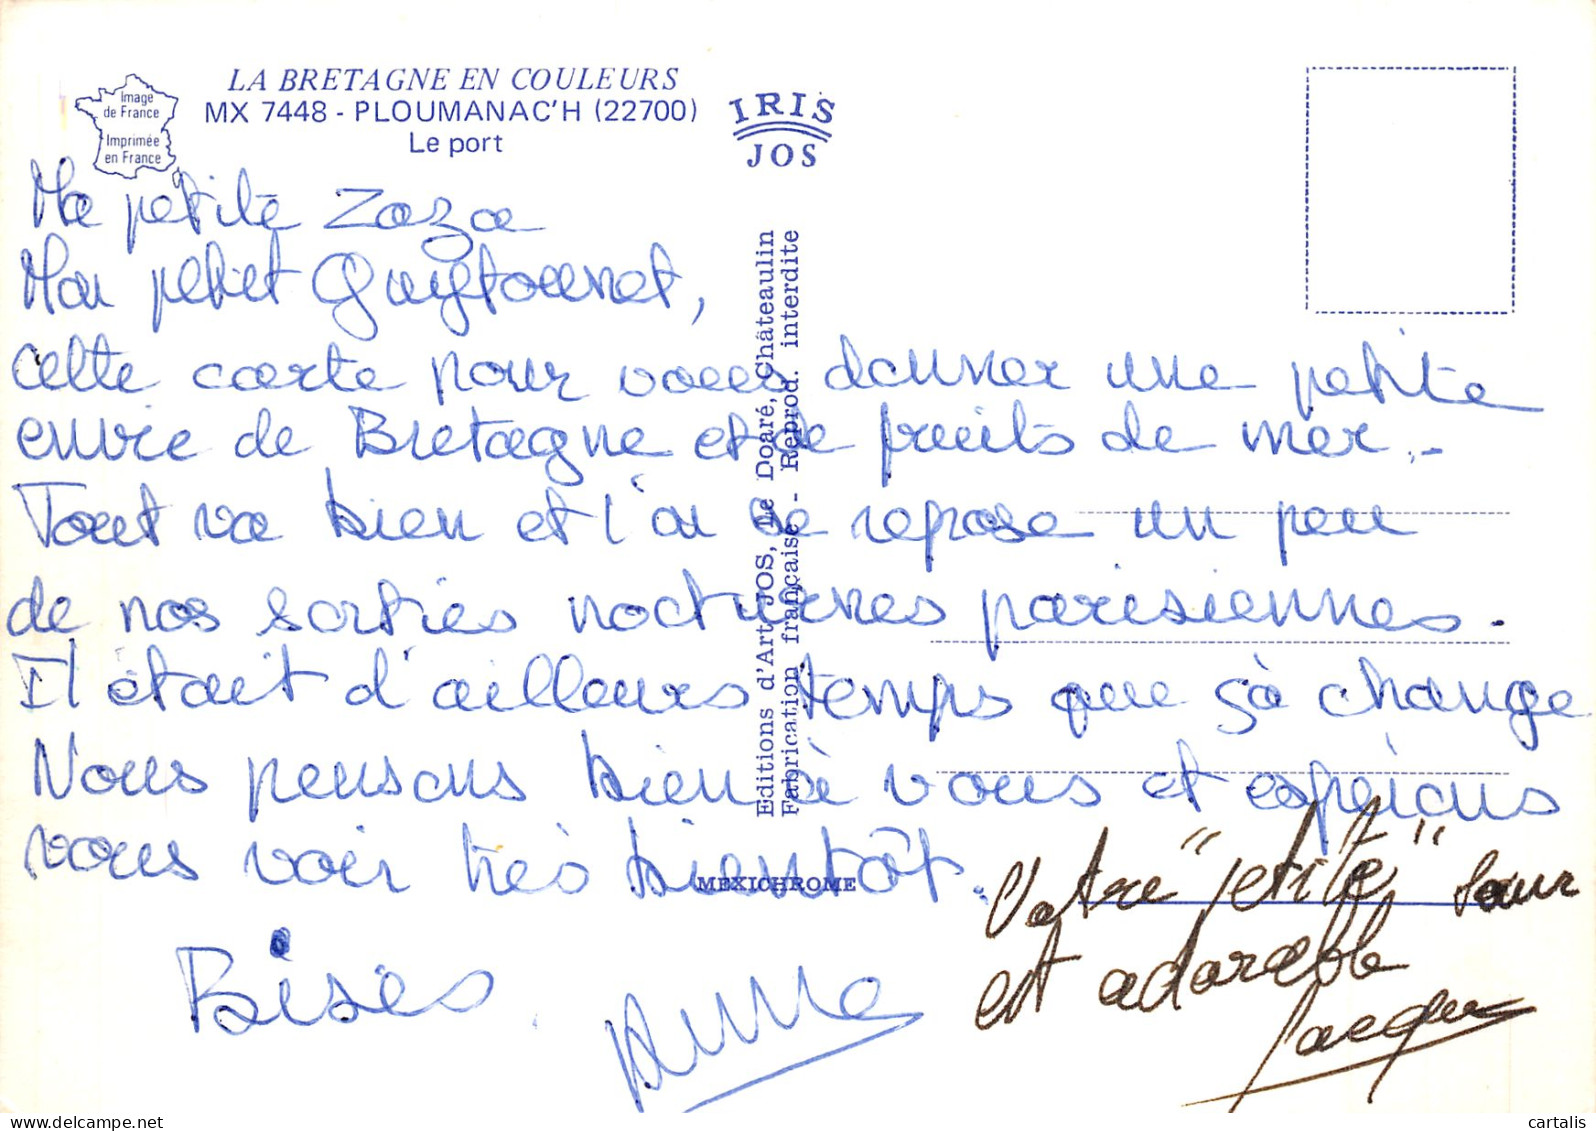 LA BRETAGNE EN COULEURS
MX 7448 - PLOUMANAC'H (22700)
Le port
Image
de France
Imprimée
en France
IRIS
JOS
Ma petite Zaza
Mon petit Guytounet,
cette carte pour vous donner une petite
envie de Bretagne et de fruits de mer.
Tout va bien et l'on se repose un peu
de nos sorties nocturnes parisiennes.
Il était d'ailleurs temps que ça change
Nous pensons bien à vous et espérons
vous voir très bientôt.
Bises
Anne
Votre "petite" sœur
est adorable
Jacques
Editions d'Art JOS, Le Doaré, Châteaulin
Fabrication française - Reprod. interdite
MEXICHROME
cartalis
delcampe.net